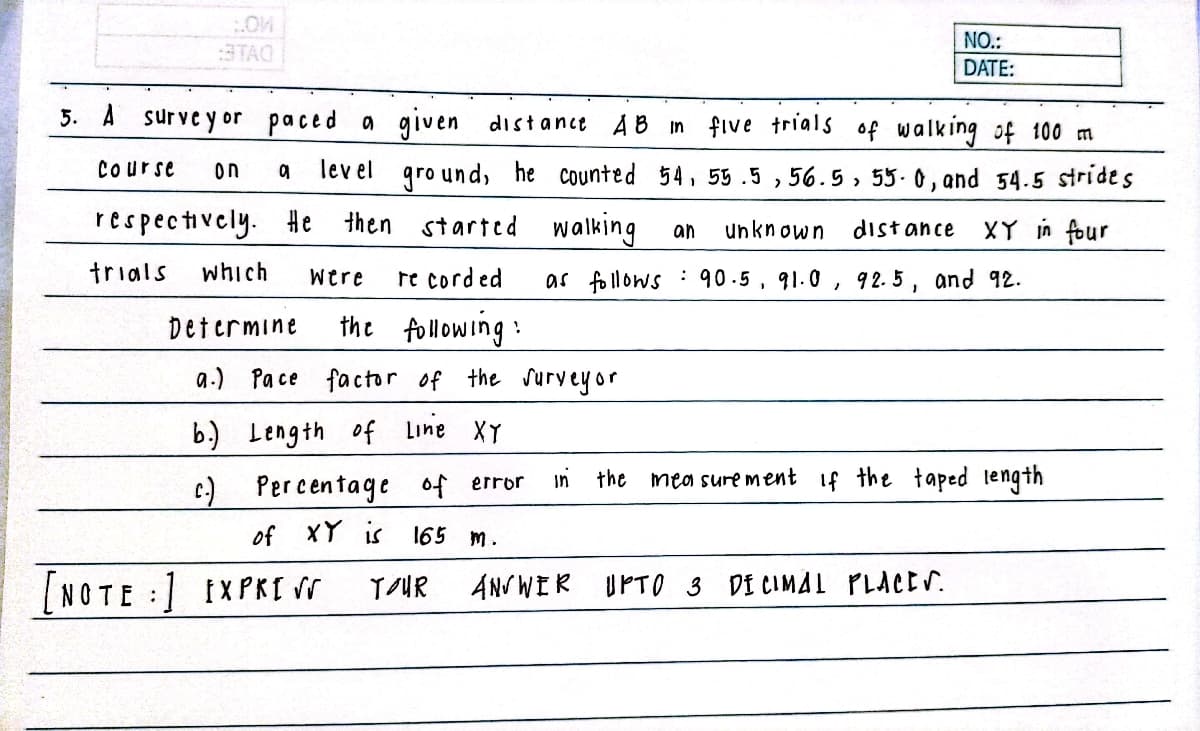 NO.:
DATE:
NO.:
DATE:
5. A surveyor paced a given distance AB in five trials of walking of 100 m
course on a level ground, he counted 54, 55.5, 56.5, 55.0, and 54.5 strides
respectively. He then started walking an unknown distance XY in four
trials which were recorded as follows : 90.5, 91.0, 92.5, and 92.
Determine the following :
a.) Pace factor of the surveyor
b.) Length of Line XY
c.) Percentage of error in the measurement if the taped length
of XY is 165 m.
[NOTE :] EXPRESS YOUR ANSWER UPTO 3 DECIMAL PLACES.